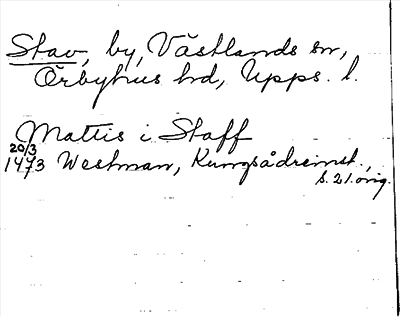 Stav, by, Västlands sn,
Örbyhus hd, Upps. l.
Mattis i Staff
20/3
1473 Westman, Kungsådreinst.,
s. 21. orig.